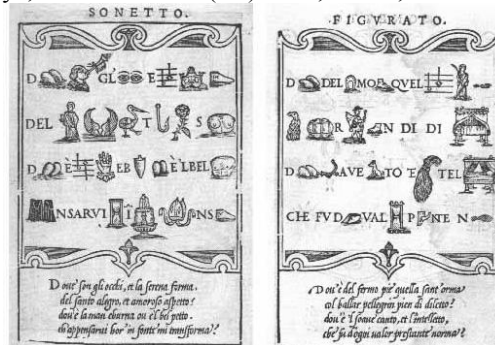 SONETTO.
D GL' E
DEL T S
D È EB È LBEL
NSARVI I NS
Doue son gli occhi, et la serena forma
del santo alegro, et amoroso aspetto?
dou'è la man eburna ou'è'l bel petto
ch'appensarui hor' in fonte mi transforma?
FIGVRATO.
D DEL MO QVEL
R N DI DI
D AVE TO E TEL
CHE FV D VAL P NTE N
Dou'è del fermo piè quella sant'orma
col ballar pellegrin pien di diletto?
dou'è 'l soaue canto, et l'intelletto,
che fu d'ogni valor prestante norma?